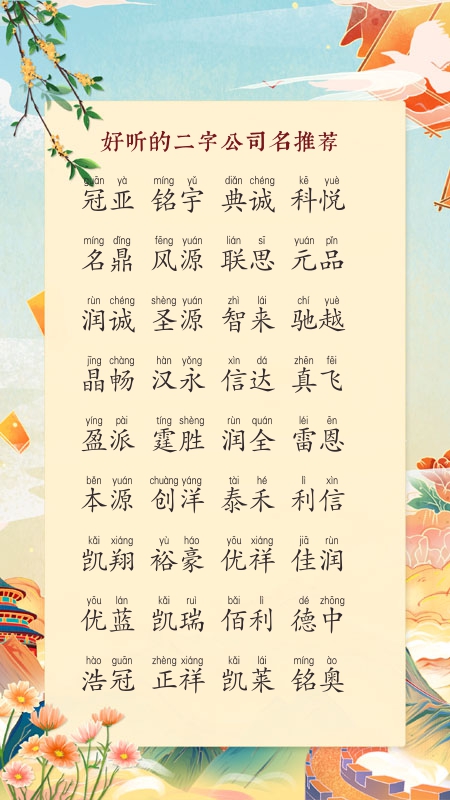 好听的二字公司名推荐
guān yà míng yǔ diǎn chéng kē yuè
冠亚 铭宇 典诚 科悦
míng dǐng fēng yuán lián sī yuán pǐn
名鼎 风源 联思 元品
rùn chéng shèng yuán zhì lái chí yuè
润诚 圣源 智来 驰越
jīng chàng hàn yǒng xìn dá zhēn fēi
晶畅 汉永 信达 真飞
yíng pài tíng shèng rùn quán léi ēn
盈派 霆胜 润全 雷恩
běn yuán chuàng yáng tài hé lì xìn
本源 创洋 泰禾 利信
kǎi xiáng yù háo yōu xiáng jiā rùn
凯翔 裕豪 优祥 佳润
yōu lán kǎi ruì bǎi lì dé zhōng
优蓝 凯瑞 佰利 德中
hào guān zhèng xiáng kǎi lái míng ào
浩冠 正祥 凯莱 铭奥